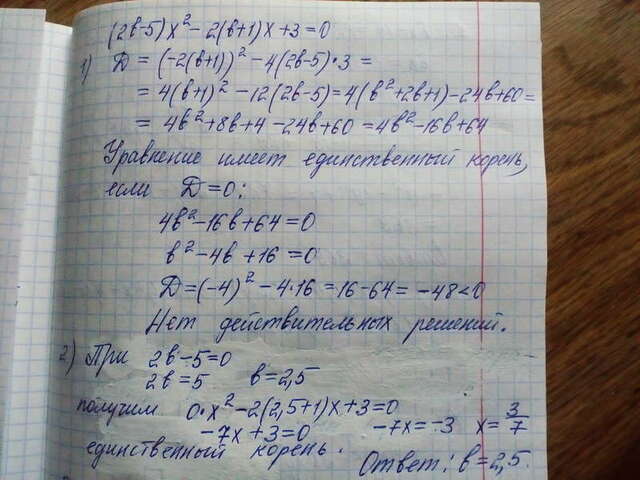 (2в-5)x² - 2(в+1)x + 3 = 0
1) D = (-2(в+1))² - 4(2в-5)·3 =
= 4(в+1)² - 12(2в-5) = 4(в²+2в+1) - 24в + 60 =
= 4в² + 8в + 4 - 24в + 60 = 4в² - 16в + 64
Уравнение имеет единственный корень,
если D = 0:
4в² - 16в + 64 = 0
в² - 4в + 16 = 0
D = (-4)² - 4·16 = 16 - 64 = -48 < 0
Нет действительных решений.
2) При 2в - 5 = 0
2в = 5 в = 2,5
получим 0·x² - 2(2,5+1)x + 3 = 0
-7x + 3 = 0 -7x = -3 x = 3/7
единственный корень.
Ответ: в = 2,5.